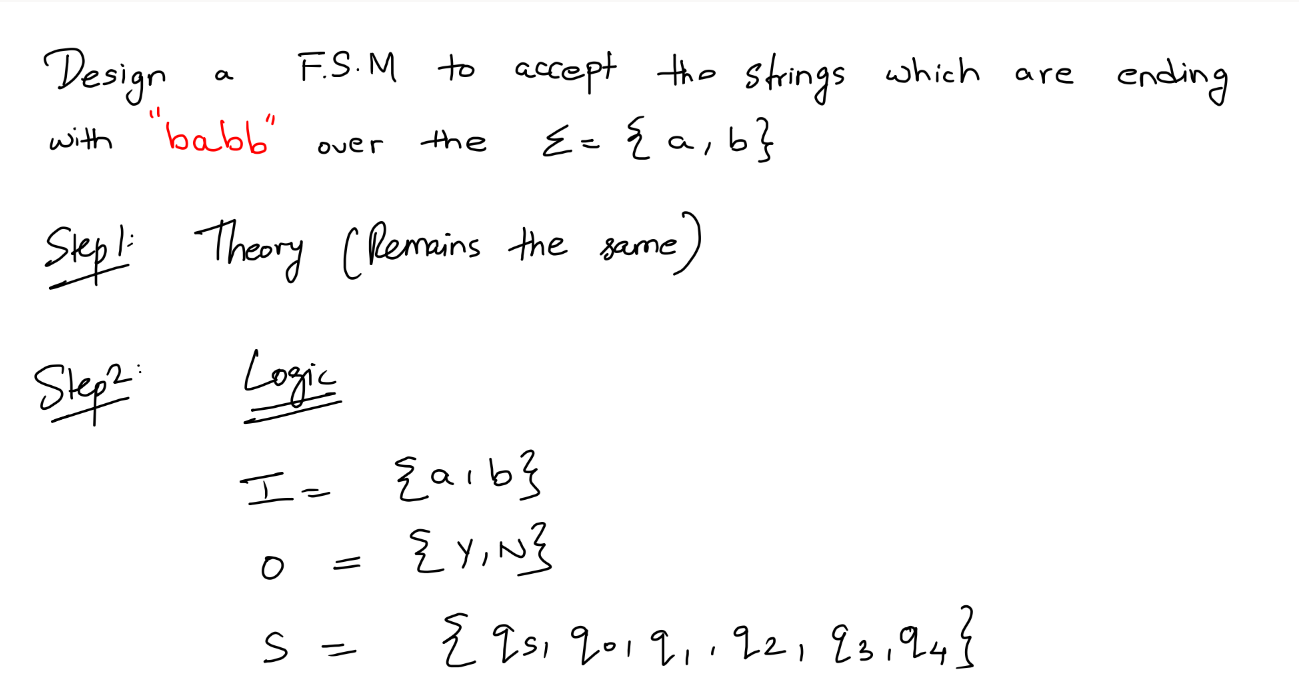 Design a F.S.M to accept the strings which are ending
with "babb" over the Σ = { a, b}
Step1: Theory (Remains the same)
Step2: Logic
I = {a, b}
O = {Y, N}
S = { qs, q0, q1, q2, q3, q4}